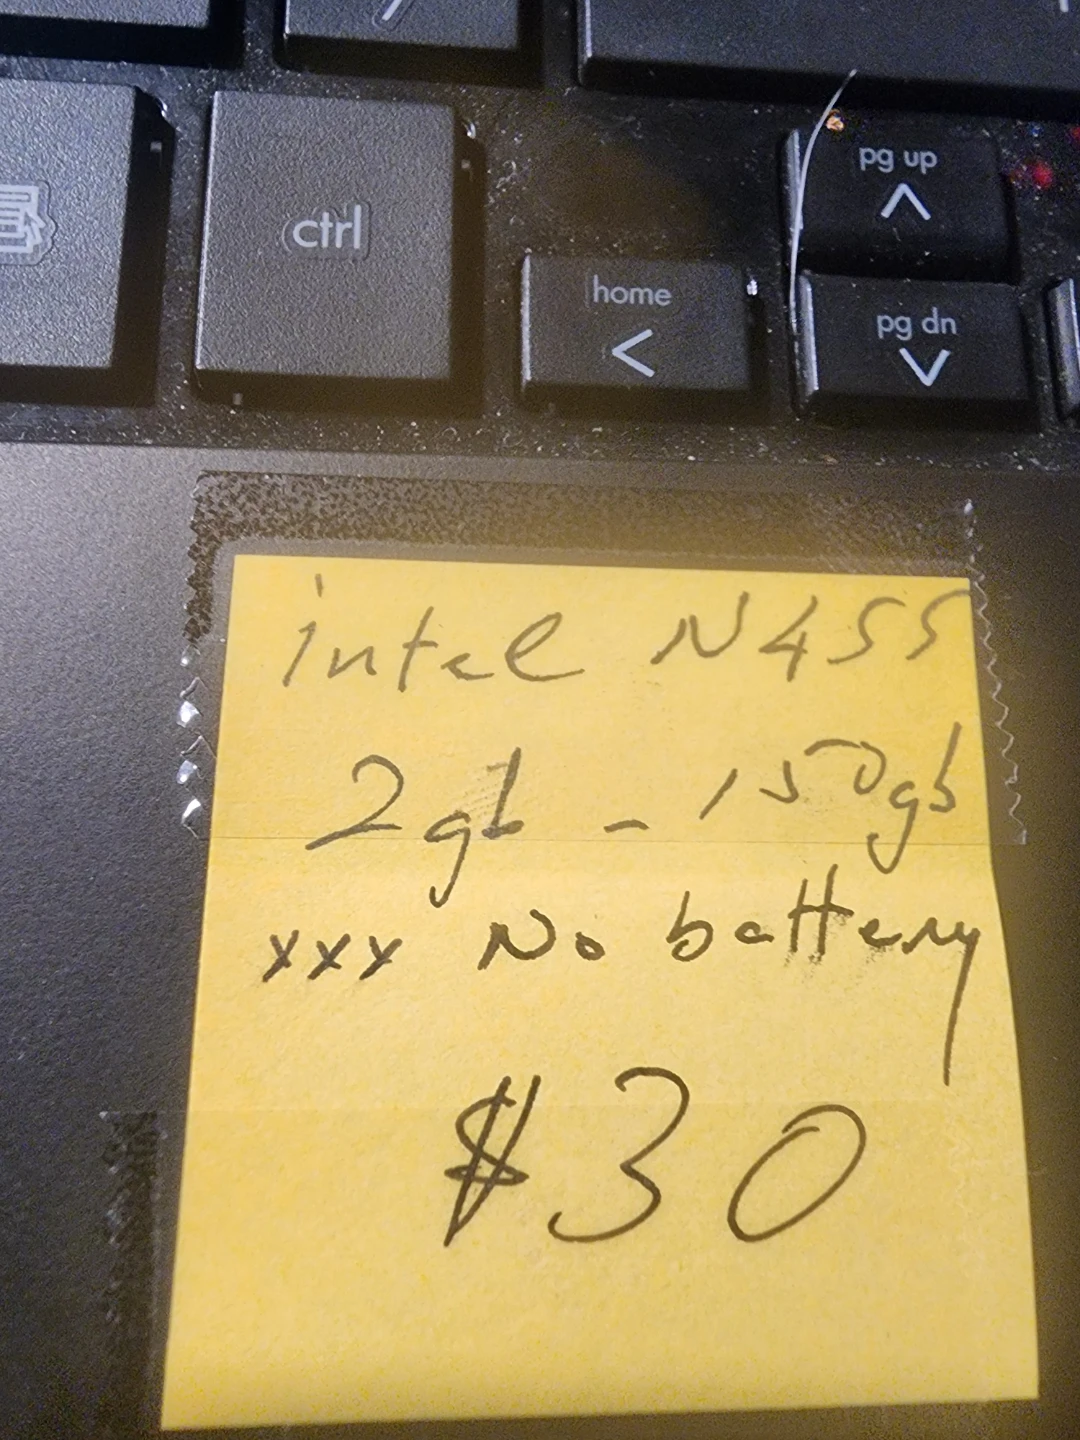 pg up
ctrl
home
pg dn
intel N455
2gb - 150gb
xxx No battery
$30